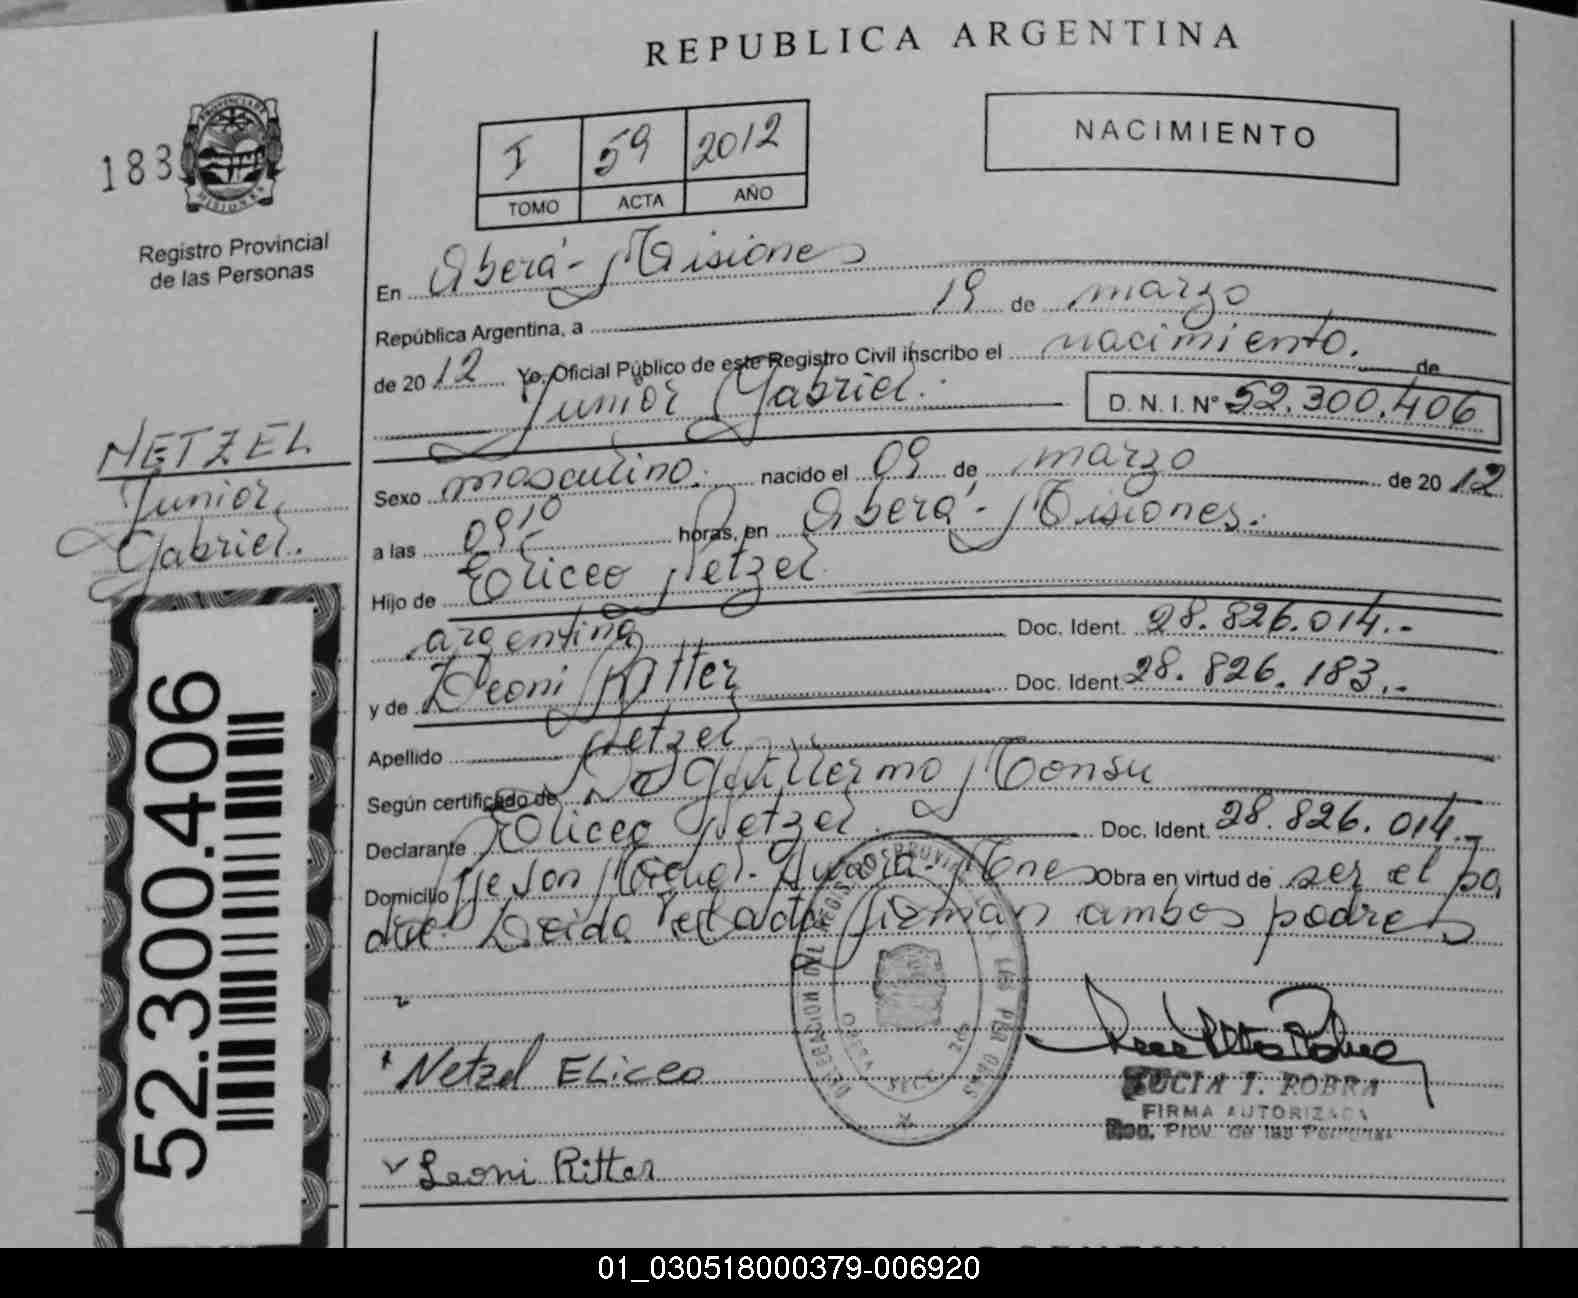 REPUBLICA ARGENTINA
183
PROVINCIA DE
MISIONES
Registro Provincial
de las Personas
I 59 2012
TOMO ACTA AÑO
NACIMIENTO
En Oberá - Misiones
República Argentina, a 19 de marzo
de 2012 Yo, Oficial Público de este Registro Civil inscribo el nacimiento. de
Junior Gabriel. D. N. I. N° 52.300.406
NETZEL
Junior
Gabriel.
Sexo masculino. nacido el 09 de marzo de 2012
a las 09 10 horas, en Oberá - Misiones.
Hijo de Eliceo Netzel
argentina Doc. Ident. 28.826.014.-
y de Leoni Ritter Doc. Ident. 28.826.183.-
Apellido Netzel
Según certificado de Guillermo
Declarante Eliceo Netzel Doc. Ident. 28.826.014.-
Domicilio Obra en virtud de ser el pa
dre Leida el acta firman ambos padres
52.300.406
DELEGACION DEL REGISTRO PROVINCIAL DE LAS PERSONAS
Netzel Eliceo
LUCIA I. ROBRA
FIRMA AUTORIZADA
Reg. Prov. de las Personas
Leoni Ritter
01_030518000379-006920